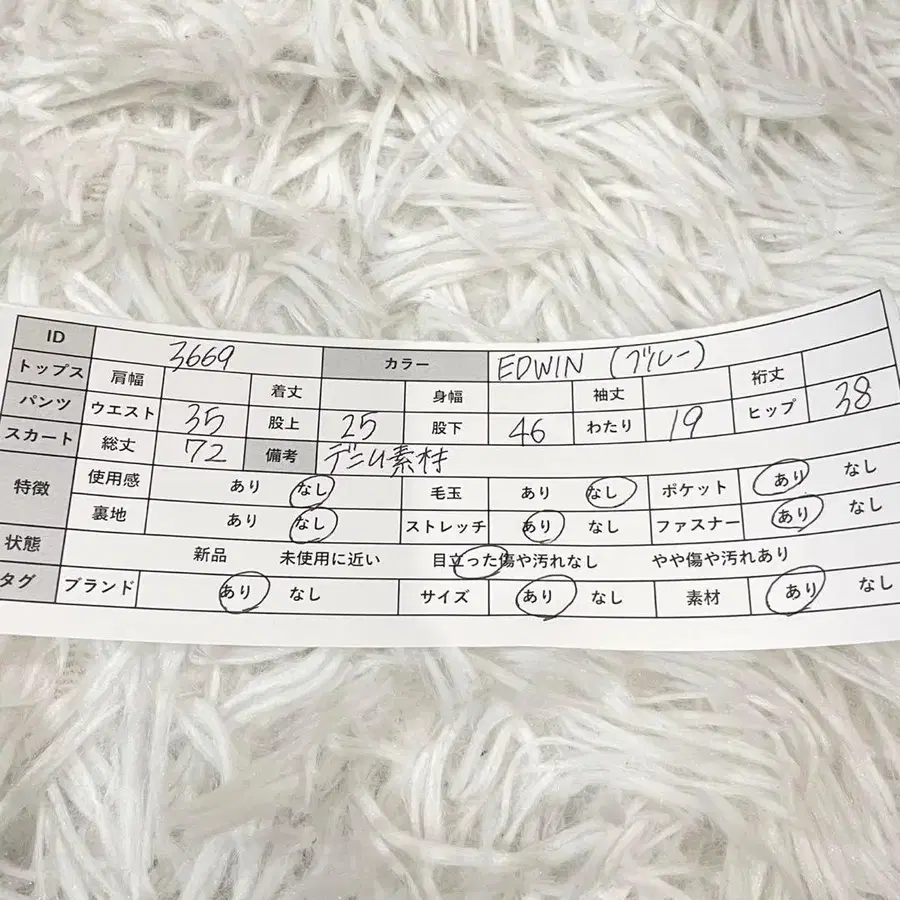 ID 3669 カラー EDWIN (ブルー)
トップス 肩幅 着丈 身幅 袖丈 裄丈
パンツ ウエスト 35 股上 25 股下 46 わたり 19 ヒップ 38
スカート 総丈 72 備考 デニム素材
特徴 使用感 あり なし 毛玉 あり なし ポケット あり なし
裏地 あり なし ストレッチ あり なし ファスナー あり なし
状態 新品 未使用に近い 目立った傷や汚れなし やや傷や汚れあり
タグ ブランド あり なし サイズ あり なし 素材 あり なし